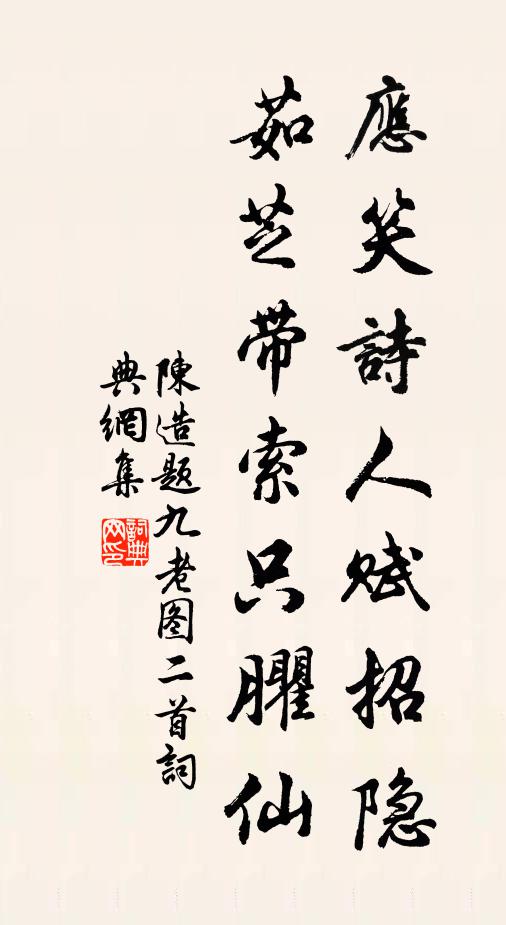 應笑詩人赋招隐
茹芝带索只臞仙
陳造题九老图二首詞
典網集
詞典网印